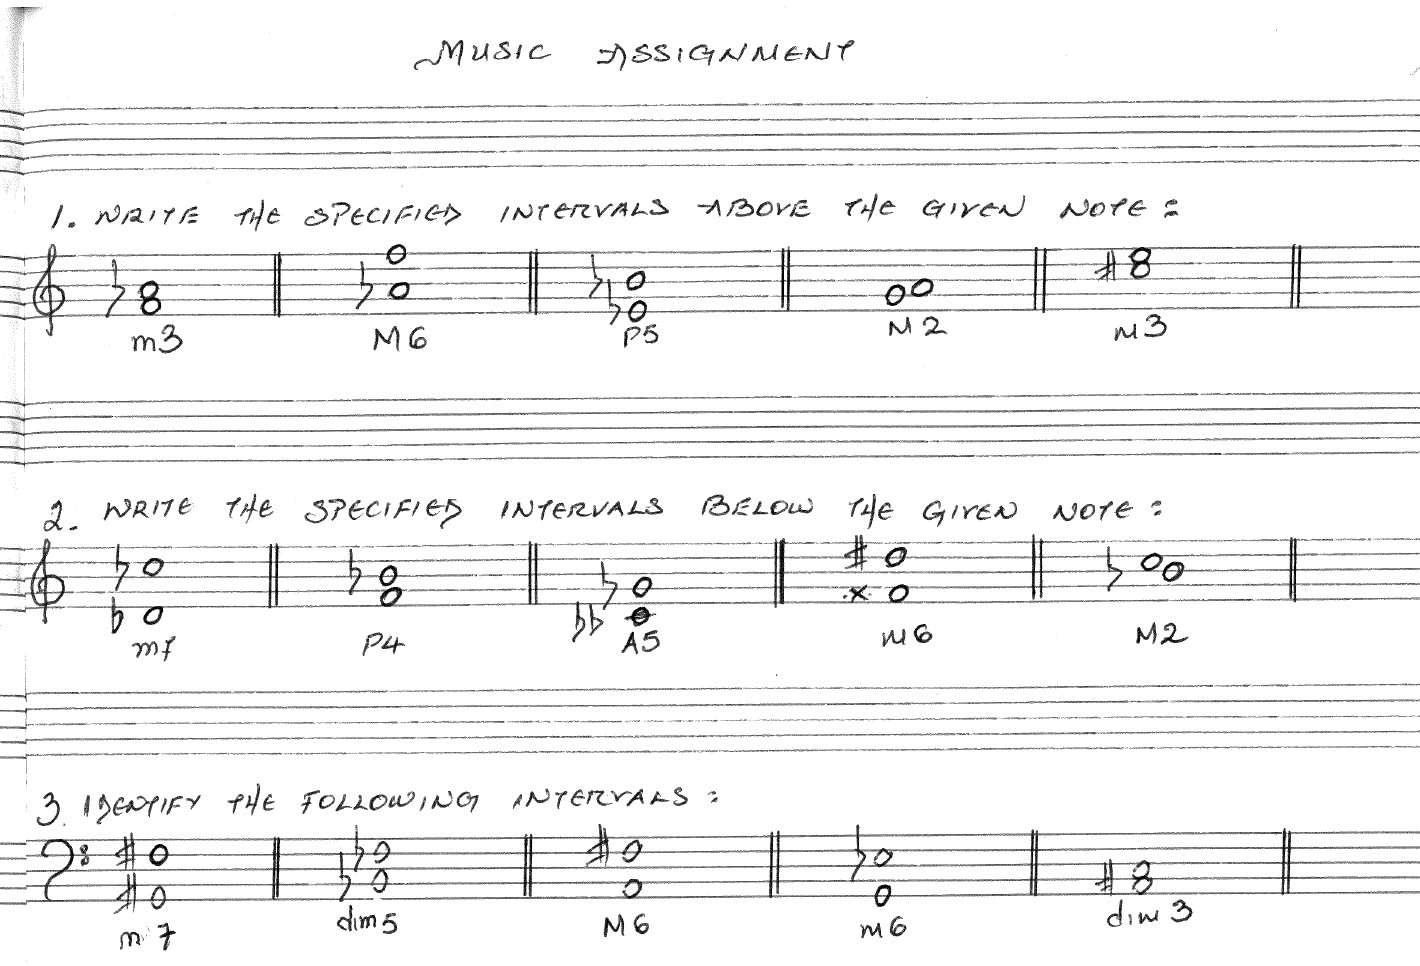 MUSIC ASSIGNMENT
1. WRITE THE SPECIFIED INTERVALS ABOVE THE GIVEN NOTE:
m3 M6 P5 M2 m3
2. WRITE THE SPECIFIED INTERVALS BELOW THE GIVEN NOTE:
m7 P4 A5 m6 M2
3. IDENTIFY THE FOLLOWING INTERVALS:
m7 dim5 M6 m6 dim3